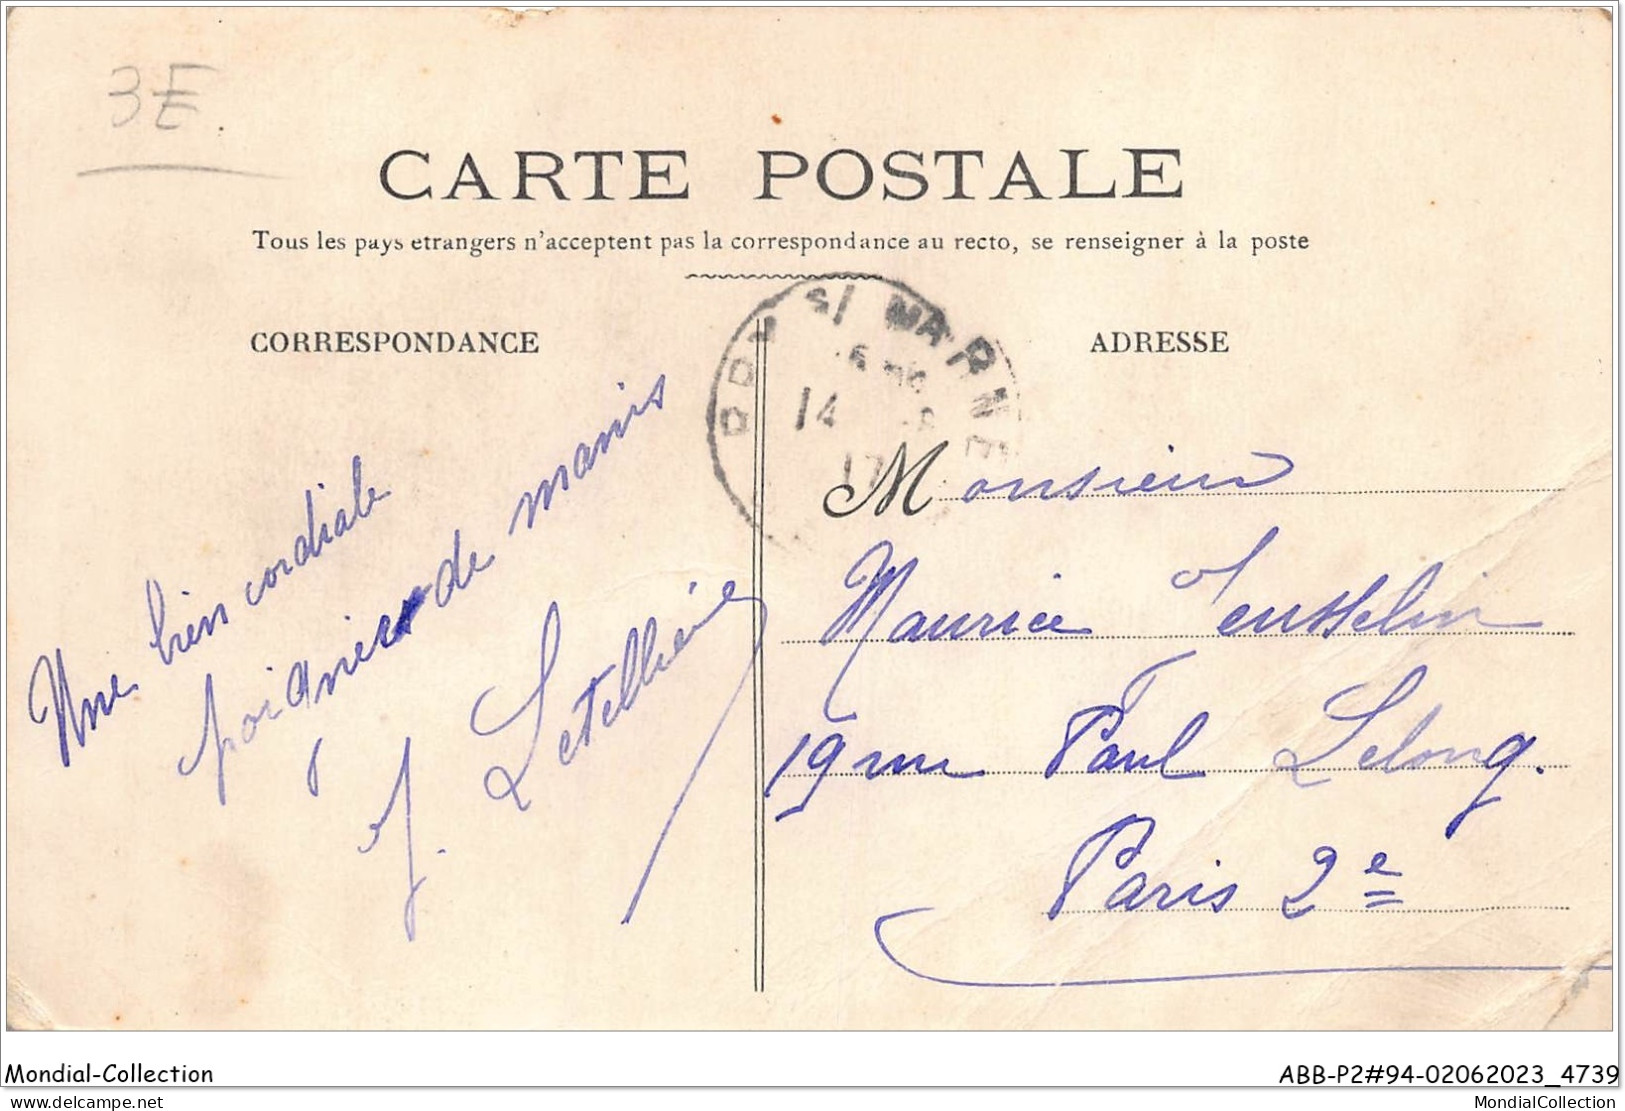 3E.
CARTE POSTALE
Tous les pays etrangers n'acceptent pas la correspondance au recto, se renseigner à la poste
CORRESPONDANCE
Une bien cordiale
poignées de mains
J. Letellier
ADRESSE
S/ MARNE
14
17
Monsieur
Maurice
19 rue Paul Lelong.
Paris 2e
Mondial-Collection
ABB-P2#94-02062023_4739
delcampe.net
MondialCollection